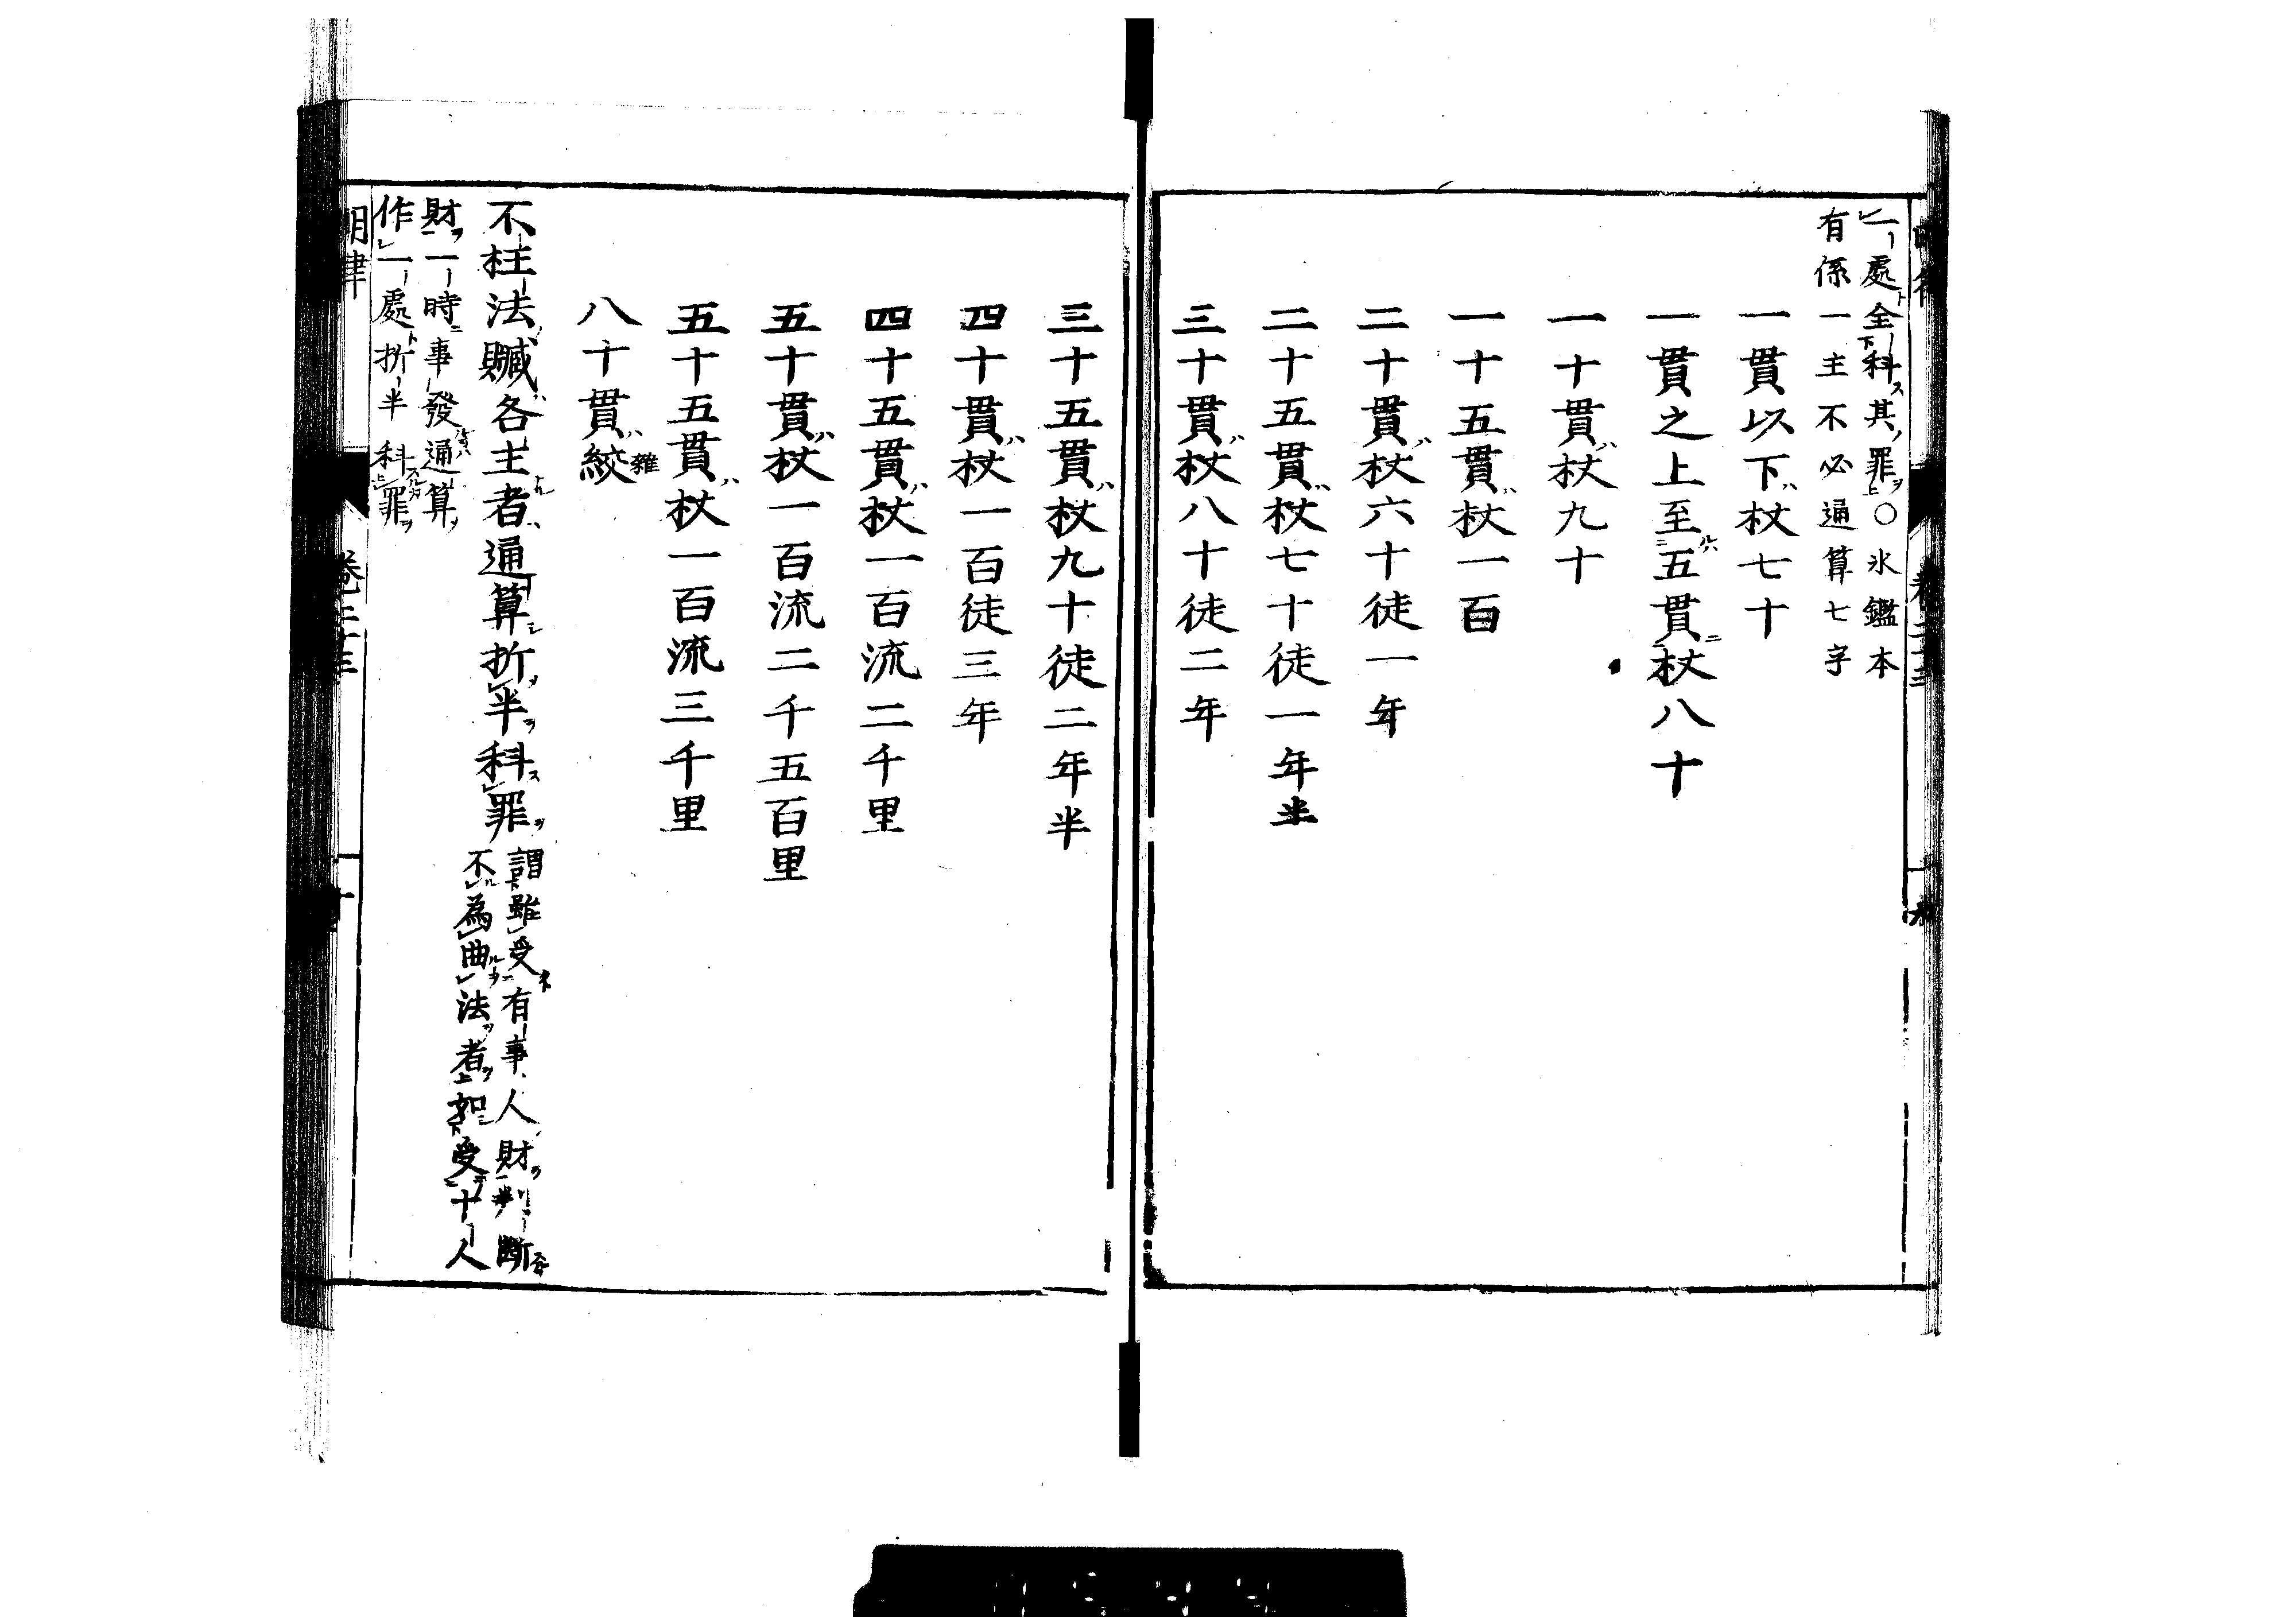 一處全科其罪○氷鑑本
有係一主不必通算七字
一貫以下杖七十
一貫之上至五貫杖八十
一十貫杖九十
一十五貫杖一百
二十貫杖六十徒一年
二十五貫杖七十徒一年半
三十貫杖八十徒二年
三十五貫杖九十徒二年半
四十貫杖一百徒三年
四十五貫杖一百流二千里
五十貫杖一百流二千五百里
五十五貫杖一百流三千里
八十貫絞雜
不枉法贓各主者通算折半科罪
謂雖受有事人財判斷
不為曲法者如受十人
財一時事發通算
作一處折半科罪
明律